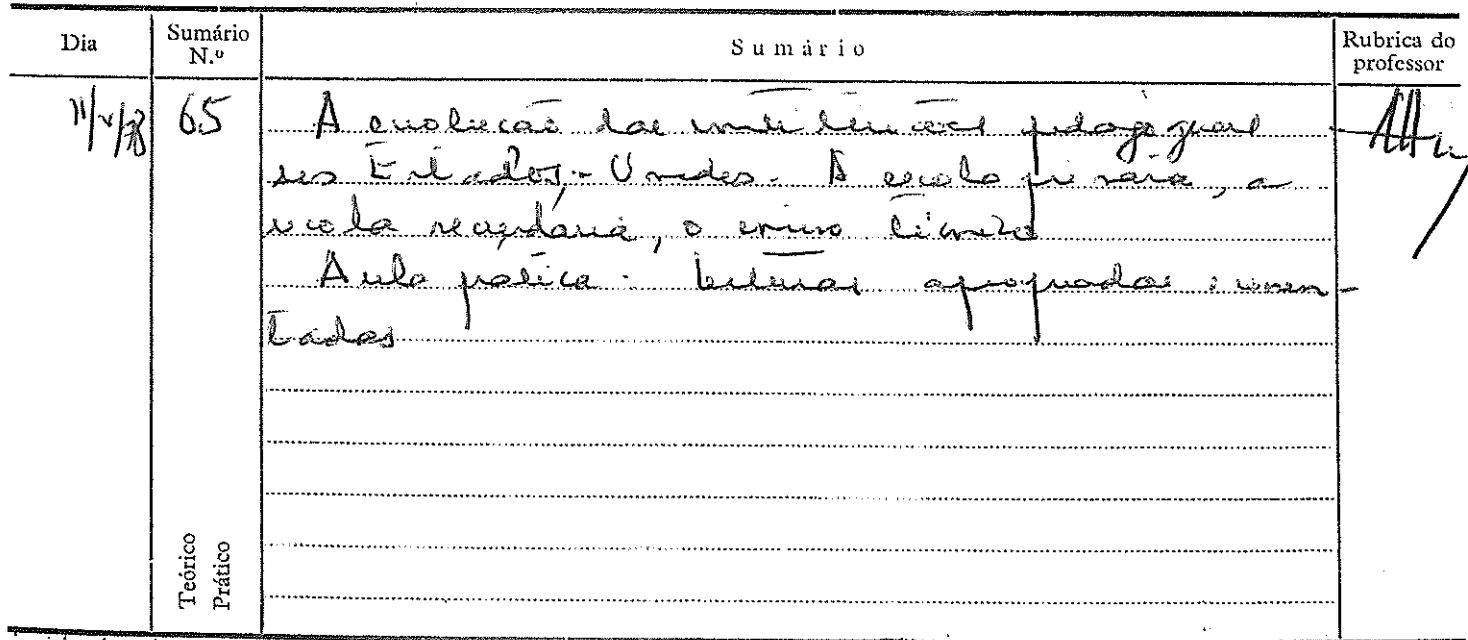 Dia
Sumário N.º
Sumário
Rubrica do professor
65
A evolução das instituições pedagógicas
nos Estados-Unidos. A escola primária, a
escola secundária, o ensino técnico
Aula prática. Leituras apropriadas comen-
tadas
Teórico
Prático